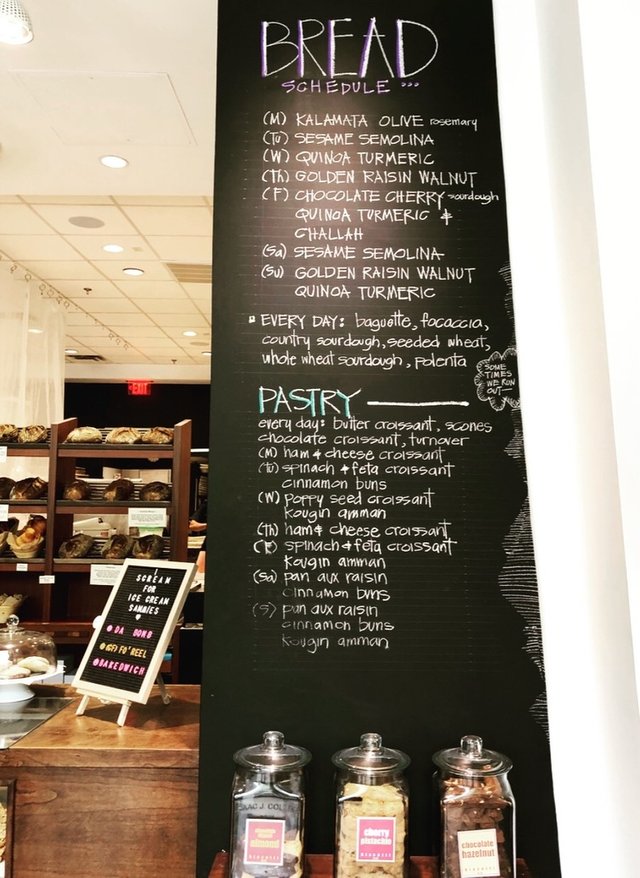 BREAD
SCHEDULE ...
(M) KALAMATA OLIVE rosemary
(Tu) SESAME SEMOLINA
(W) QUINOA TURMERIC
(Th) GOLDEN RAISIN WALNUT
(F) CHOCOLATE CHERRY sourdough
QUINOA TURMERIC &
CHALLAH
(Sa) SESAME SEMOLINA
(Su) GOLDEN RAISIN WALNUT
QUINOA TURMERIC
EVERY DAY: baguette, focaccia,
country sourdough, seeded wheat,
whole wheat sourdough, polenta
SOME
TIMES
WE RUN
OUT—
PASTRY
every day: butter croissant, scones
chocolate croissant, turnover
(M) ham & cheese croissant
(Tu) spinach & feta croissant
cinnamon buns
(W) poppy seed croissant
kougin amman
(Th) ham & cheese croissant
(F) spinach & feta croissant
kougin amman
(Sa) pan aux raisin
cinnamon buns
(S) pan aux raisin
cinnamon buns
kougin amman
EXIT
I
SCREAM
FOR
ICE CREAM
SAMMIES
DA BOMB
FO'REEL
BAKEDWICH
almond
biscotti
cherry
pistachio
biscotti
chocolate
hazelnut
biscotti